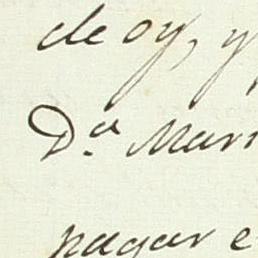 de oy, y
D.ª Mari
pagar e